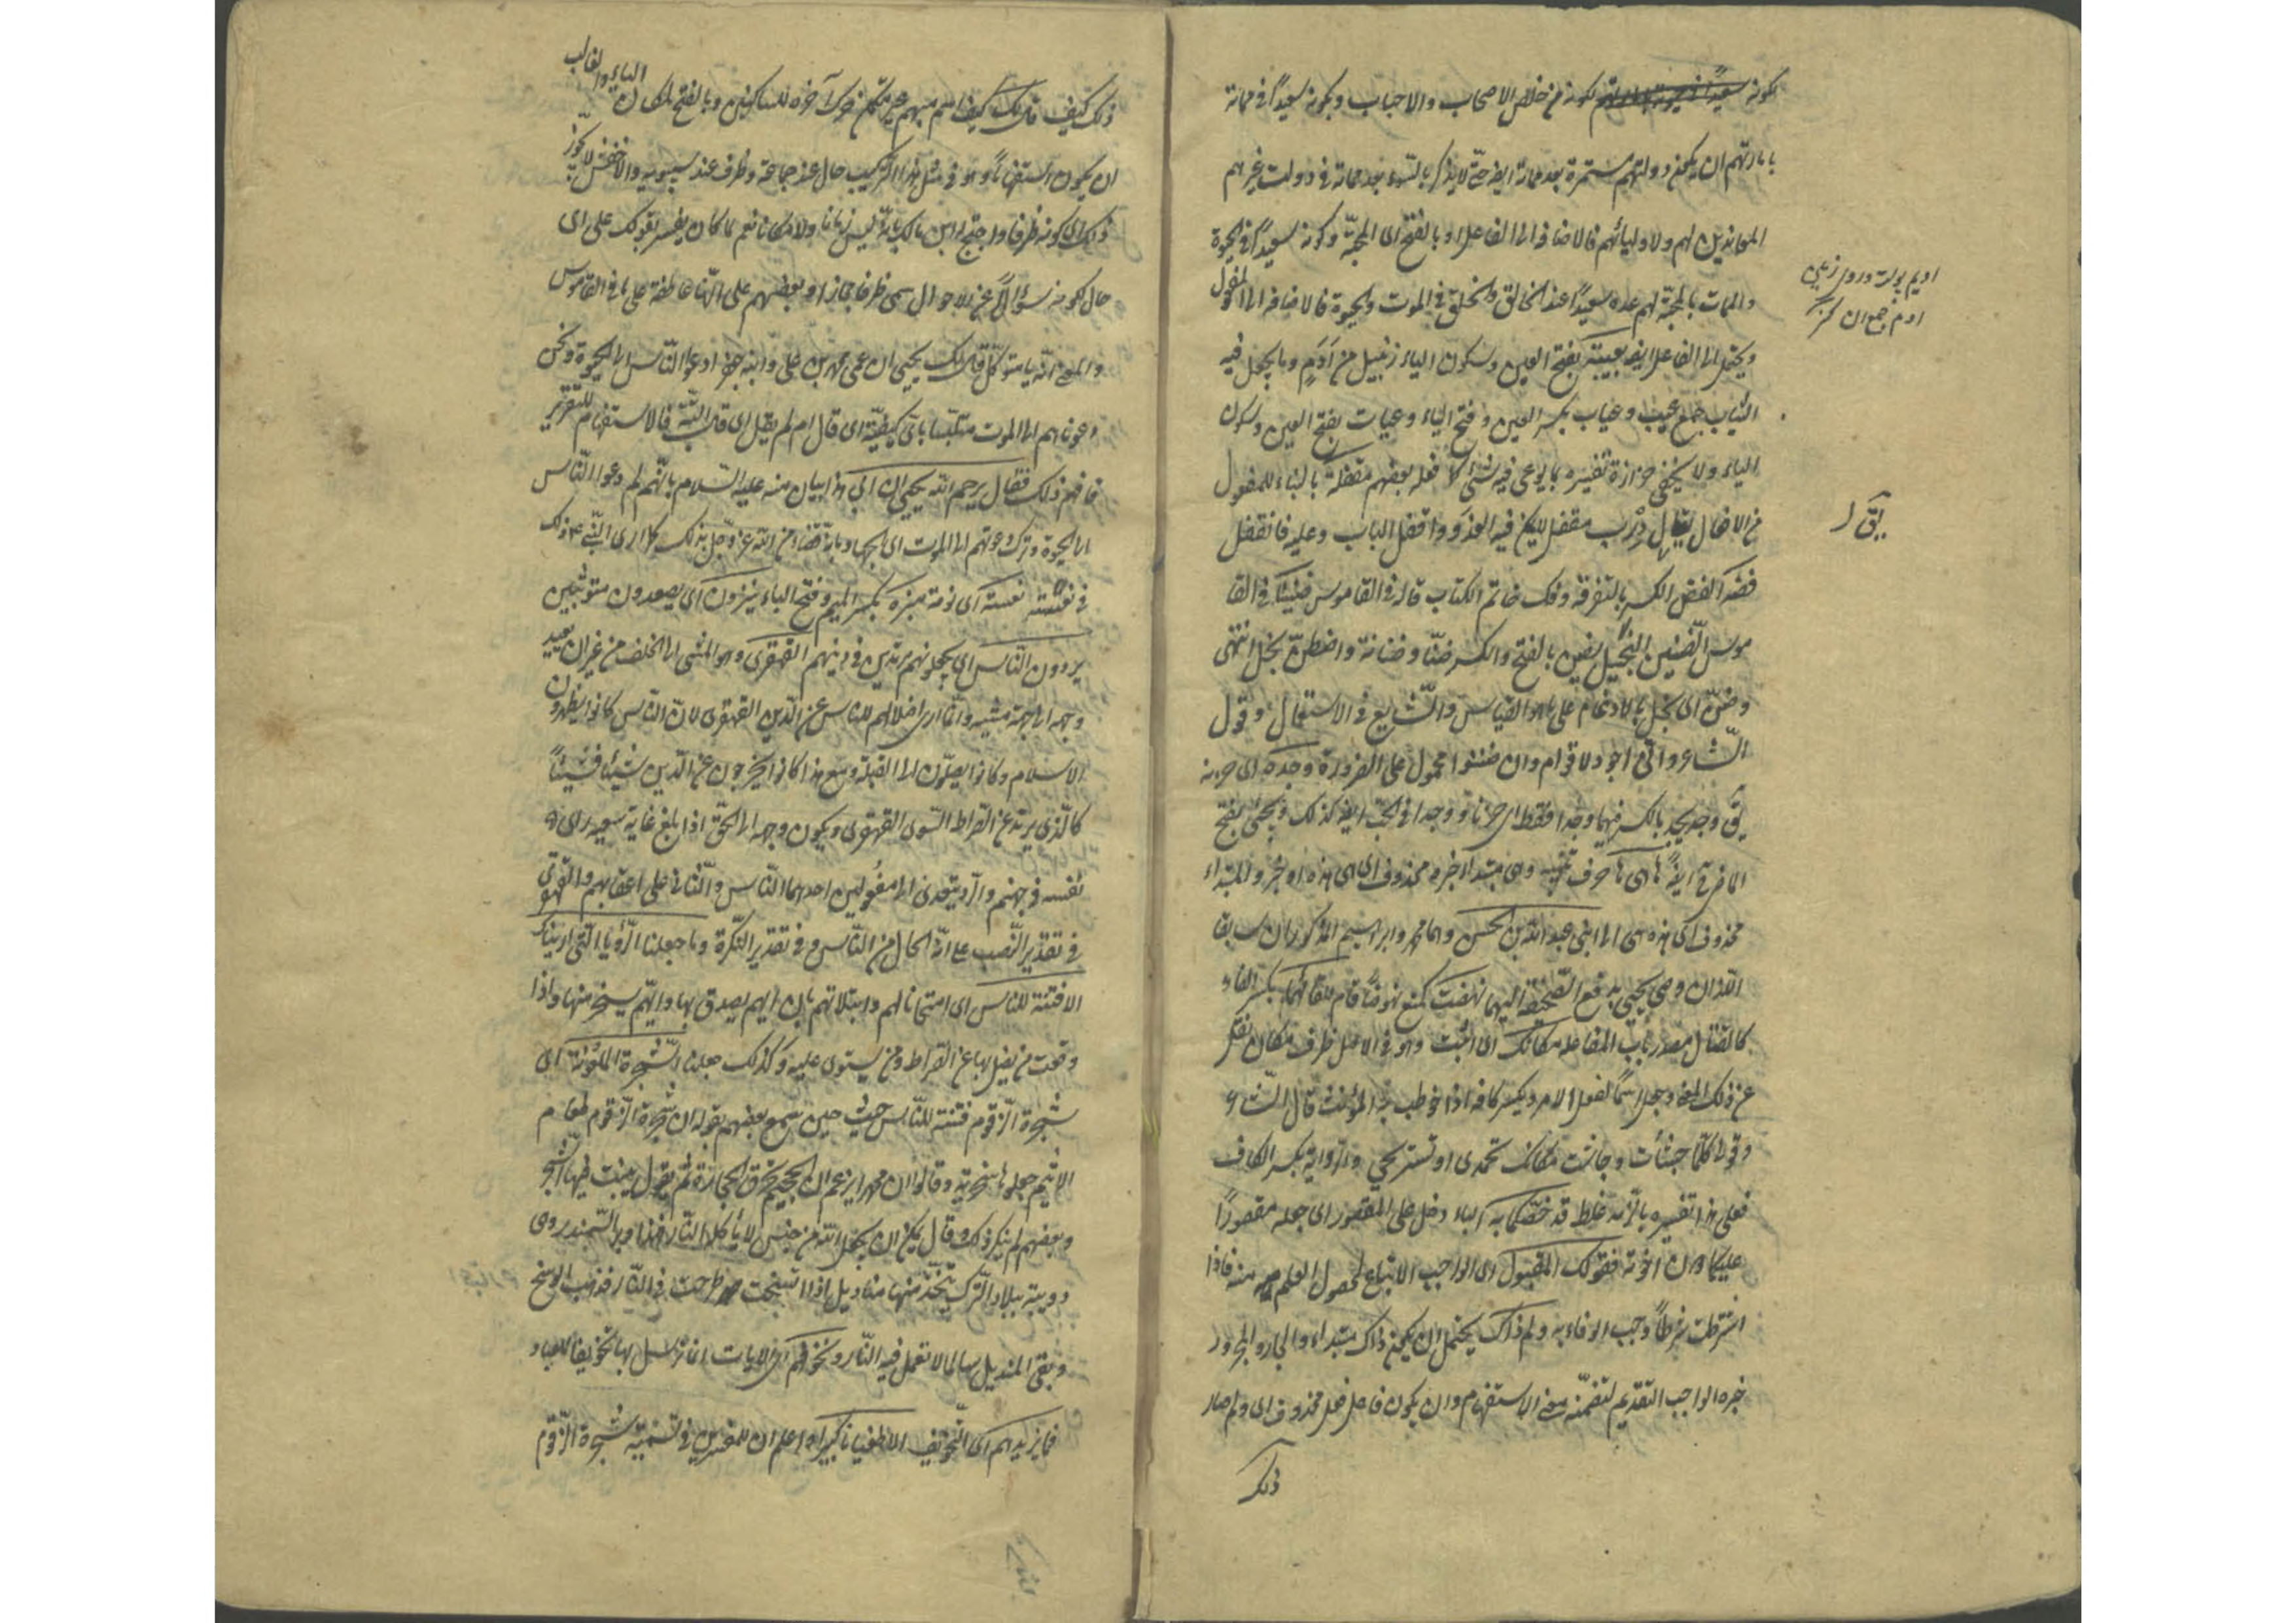 بكونه من خلاص الاصحاب والاحباب وبكونه سعيدًا في مماته
بارادتهم ان يكون دولتهم مستمرة بعد مماته ايضا حتى لا يذكر بالسوء بعد مماته في دولت غيرهم
المعاندين لهم ولاوليائهم فالاضافة الى الفاعل او بالفتح اى المحبة وكونه سعيدًا في الحيوة
والممات بالمحبة لهم عده سعيدًا عند الخالق والخلق في الموت والحيوة فالاضافة الى المفعول
ويحتمل الى الفاعل ايضا بعيبته بفتح العين وسكون الياء زنبيل من اَدَمٍ وما يجعل فيه
الثياب جمع عيب وعياب بكسر العين وفتح الياء وعيبات بفتح العين وسكون
الياء ولا يخفى حزازة تفسيره بما يوعى فيه شئ كما فعله بعضهم مقفلة بالبناء للمفعول
من الاقفال يقال دَرْب مقفل للكن فيه العدو واقفل الباب وعليه فانقفل
فضه الفض الكسر بالتفرقة وفك خاتم الكتاب قاله في القاموس ضنينًا في القا
موس الضنين البخيل يضن بالفتح والكسر ضنّا وضنانة واضطنّ بخل انتهى
وضنّ اى بخل بالادغام على ما هو القياس والشايع في الاستعمال وقول
الشاعر وانى اجود لاقوام وان ضننوا محمول على الضرورة وجده اى حزنه
يق وجد يجد بالكسر فيهما وجدا فقط اى حزنا ووجدا في الحب ايضا كذلك
محذوف اى هذه هى الى ابنى عبد الله بن الحسن وهما محمد وابراهيم المذكوران سابقا
اللذان وصى يحيى بدفع الصحيفة اليهما نهضت كمنع نهوضًا قام للقائهما بكسر القاف
كالقتال مصدر باب المفاعلة مكانك اى اثبت وهو في الاصل ظرف مكان نقل
عن ذلك المعنى وجعل اسمًا لفعل الامر ويكسر كافه اذا خوطب به المؤنث قال الشاعر
وقولى كلما جشأت وجاشت مكانك تحمدى او تستريحى والرواية بكسر الكاف
فعلى هذا تفسيره بالزمه غلط قد خصّكما به الباء دخل على المقصور اى جعله مقصورًا
عليكما دون اخوته فقولك المقبول اى الواجب الاتباع لحصول العلم منه فاذا
اشترطت شرطًا وجب الوفاء به ولم ذاك يحتمل ان يكون ذاك مبتداء والجار والمجرور
خبره الواجب التقديم لتضمنه معنى الاستفهام وان يكون فاعل فعل محذوف اى ولم صار
ذلك
يقال
ذلك كيف قال لك كيف اسم مبهم غير متمكن حرك آخره للساكنين وبالفتح لمكان الياء والغالب
ان يكون استفهامًا وهو في مثل هذا التركيب حال عند جماعة وظرف عند سيبويه والاخفش لا يجوّز
ذلك اى كونه ظرفا واحتج له ابن مالك بانه ليس زمانا ولا مكانا نعم لما كان يفسر بقولك على اى
حال لكونه سؤالًا عن الاحوال سمى ظرفا مجازا وبعضهم على انها عاطفة على ما في القاموس
والمعنى انه يا متوكل قال لك يحيى ان عمى محمد بن على وابنه جعفر ادعوا الناس الى الحيوة ونحن
دعوناهم الى الموت متلبسا باى كيفية اى قال ام لم يقل اى قال البتة فالاستفهام للتقرير
فافهم ذلك فقال يرحم الله يحيى ان ابى هذا بيان منه عليه السلام بانهم لم دعوا الناس
الى الحيوة وترك دعوتهم الى الموت اى الجهاد بانه قضاء من الله عز وجل بذلك كما ارى النبى ذلك
في نعسته نعسة اى نومة منبره بكسر الميم وفتح الباء ينزون اى يصعدون متوثبين
يردون الناس اى يجعلونهم مرتدين في دينهم القهقرى وهو المشى الى الخلف من غير ان يعيد
وجهه الى جهة مشيه وانما ارى اضلالهم للناس عن الدين القهقرى لان الناس كانوا يظهرون
الاسلام وكانوا يصلون الى القبلة ومع هذا كانوا يخرجون عن الدين شيئا فشيئًا
كالذى يرتد عن الصراط السوى القهقرى ويكون وجهه الى الحق اذا بلغ غاية سعيه راى
نفسه في جهنم والرد يتعدى الى مفعولين احدهما الناس والثانى على اعقابهم والقهقرى
في تقدير النصب على انه الحال من الناس وفي تقدير النكرة وما جعلنا الرؤيا التى اريناك
الا فتنة للناس اى امتحانا لهم وابتلائهم بان ايهم يصدق بها وايهم يسخر منها واذا
وقعت من يضل بها عن الصراط ومن يستوى عليه وكذلك جعلنا الشجرة الملعونة اى
شجرة الزقوم فتنة للناس حيث حين سمع بعضهم بقوله ان شجرة الزقوم طعام
الاثيم جعلوها سخرية وقالوا ان محمدا يزعم ان الجحيم تحرق الحجارة ثم يقول ينبت فيها الشجر
وبعضهم لم ينكر ذلك وقال يمكن ان يجعل الله من جنس لا يأكله النار فهذا وبر السمندر وهى
دويبة ببلاد الترك يتخذ منها مناديل اذا اتسخت طرحت في النار فذهب الوسخ
وبقى المنديل سالما لا تعمل فيه النار ونخوفهم اى الايات انما نرسل بها تخويفا للعباد
فما يزيدهم اى التخويف الا طغيانا كبيرا واعلم ان للمفسرين في تسمية شجرة الزقوم